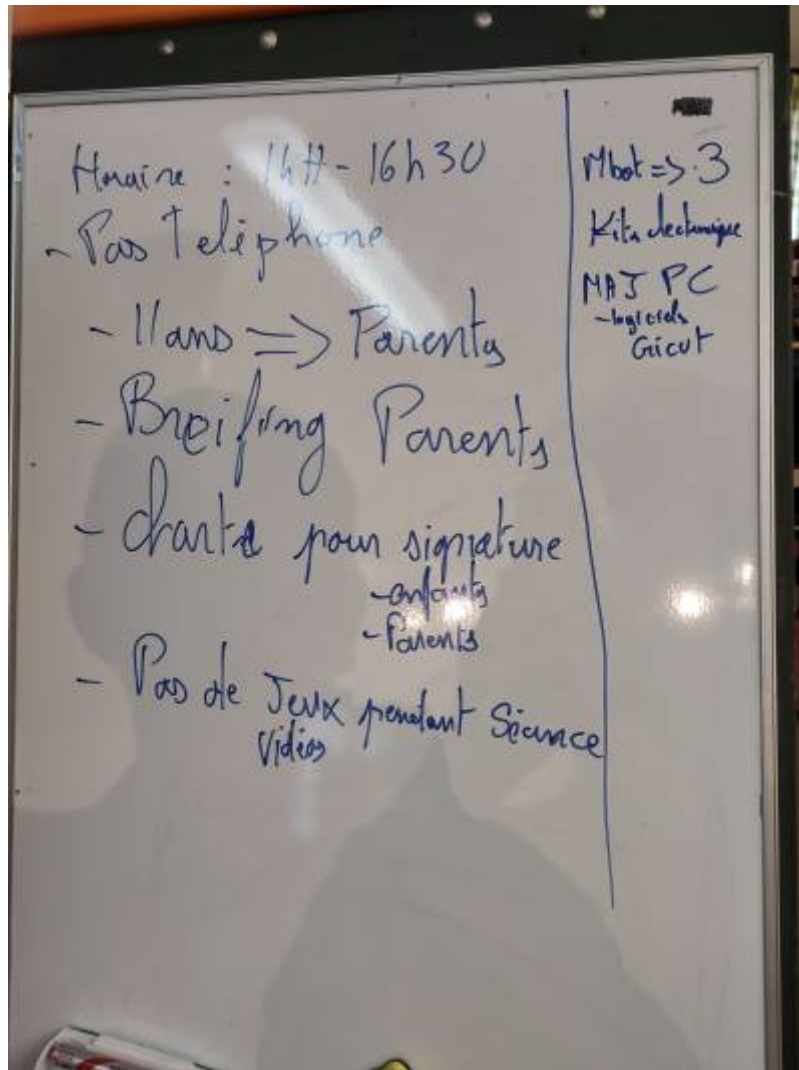 Horaire : 14H - 16h30
- Pas Teléphone
- 11 ans => Parents
- Breifing Parents
- charte pour signature
- enfants
- Parents
- Pas de Jeux pendant Séance
Vidéos
Mbot => 3
Kits électronique
MAJ PC
- logiciels